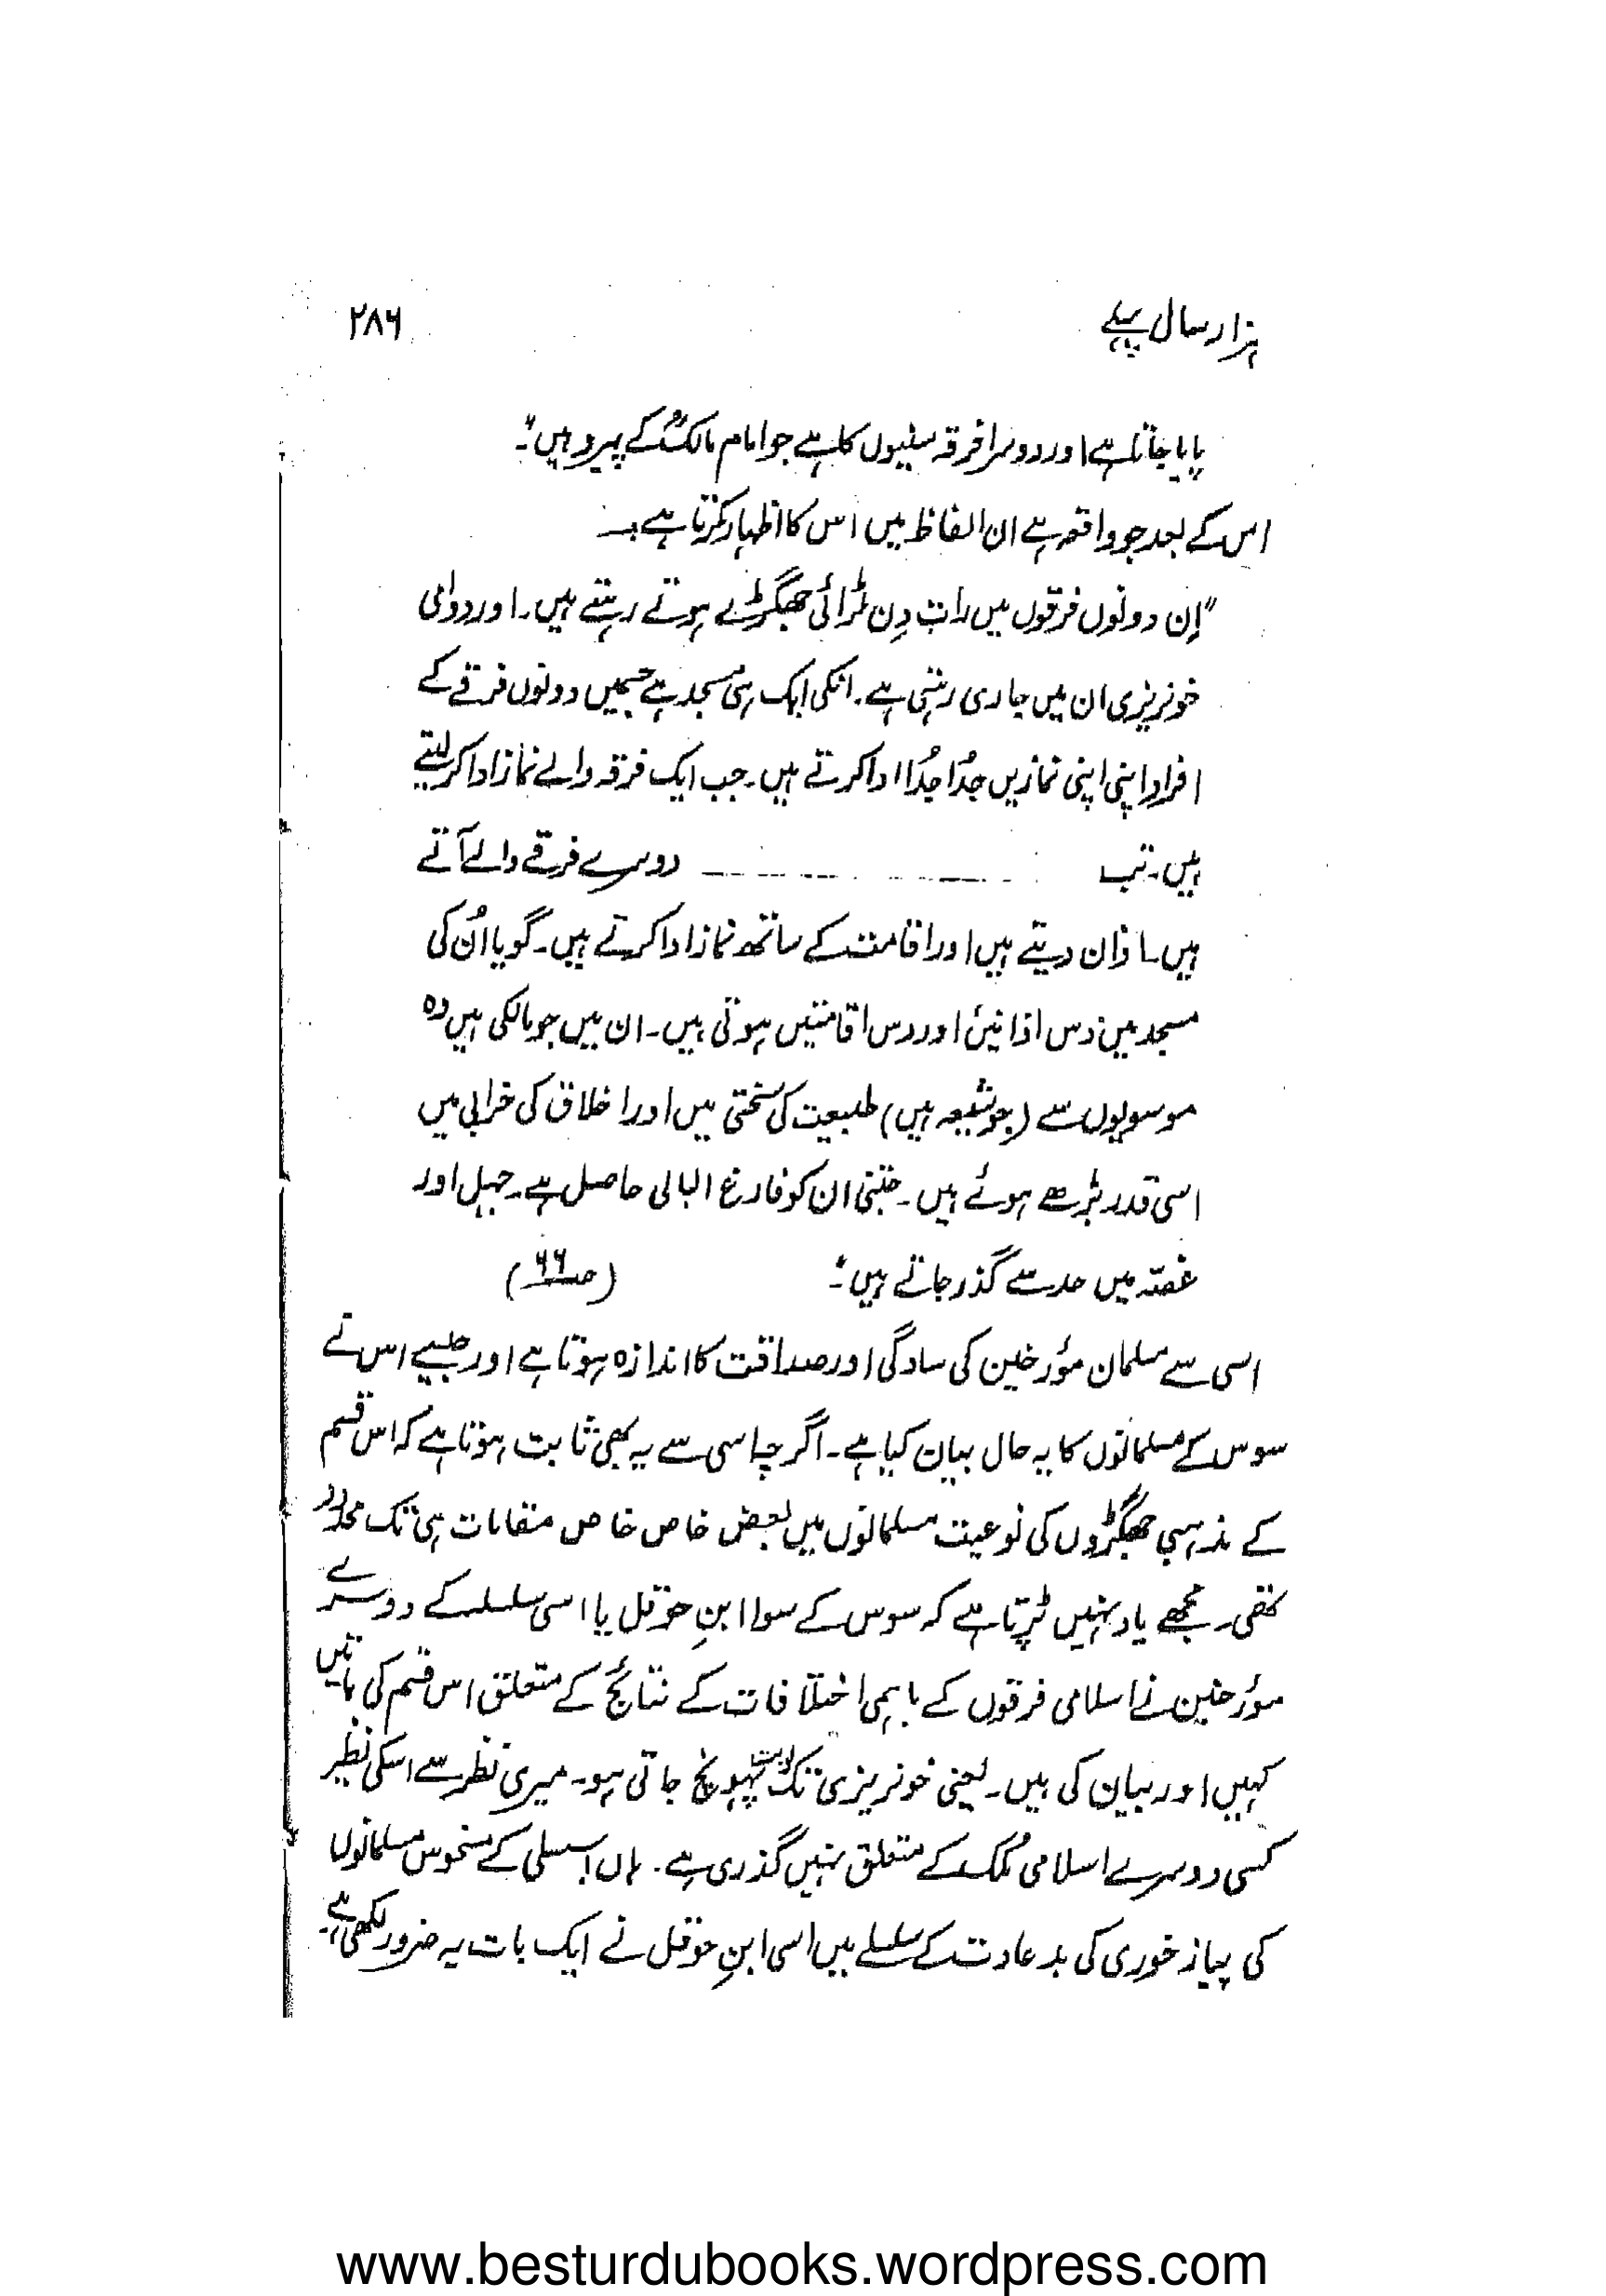 ہزار سال پہلے ۲۸۶
پایا جاتا ہے اور دوسرا فرقہ سنیوں کا ہے جو امام مالکؒ کے پیرو ہیں"۔
اس کے بعد جو واقعہ ہے ان الفاظ میں اس کا اظہار کرتا ہے :۔
"اِن دونوں فرقوں میں رات دِن لڑائی جھگڑے ہوتے رہتے ہیں۔ اور دوامی
خونریزی ان میں جاری رہتی ہے۔ انکی ایک ہی مسجد ہے جسمیں دونوں فرقے کے
افراد اپنی اپنی نمازیں جُدا جُدا ادا کرتے ہیں۔ جب ایک فرقہ والے نماز ادا کر لیتے
ہیں۔ تب ــــــــــ دوسرے فرقے والے آتے
ہیں۔ اذان دیتے ہیں اور اقامت کے ساتھ نماز ادا کرتے ہیں۔ گویا اُن کی
مسجد میں دس اذانیں اور دس اقامتیں ہوتی ہیں۔ ان میں جو مالکی ہیں وہ
موسویوں سے (جو شیعہ ہیں) طبیعت کی سختی میں اور اخلاق کی خرابی میں
اسی قدر بڑھے ہوئے ہیں۔ جتنی ان کو فارغ البالی حاصل ہے۔ جہل اور
غصّہ میں حد سے گذر جاتے ہیں"۔ (صـ۶۶)
اسی سے مسلمان مؤرخین کی سادگی اور صداقت کا اندازہ ہوتا ہے اور جیسے اس نے
سوس کے مسلمانوں کا یہ حال بیان کیا ہے۔ اگرچہ اسی سے یہ بھی ثابت ہوتا ہے کہ اس قسم
کے مذہبی جھگڑوں کی نوعیت مسلمانوں میں بعض خاص خاص مقامات ہی تک محدود
تھی۔ مجھے یاد نہیں پڑتا ہے کہ سوس کے سوا ابنِ حوقل یا اسی سلسلہ کے دوسرے
مؤرخین نے اسلامی فرقوں کے باہمی اختلافات کے نتائج کے متعلق اس قسم کی باتیں
کہیں اور بیان کی ہیں۔ یعنی خونریزی تک نوبت پہونچ جاتی ہو۔ میری نظر سے اسکی نظیر
کسی دوسرے اسلامی مُلک کے متعلق نہیں گذری ہے۔ ہاں! سسلی کے منحوس مسلمانوں
کی پیاز خوری کی بد عادت کے سلسلے میں اسی ابنِ حوقل نے ایک بات یہ ضرور لکھی ہے۔
www.besturdubooks.wordpress.com